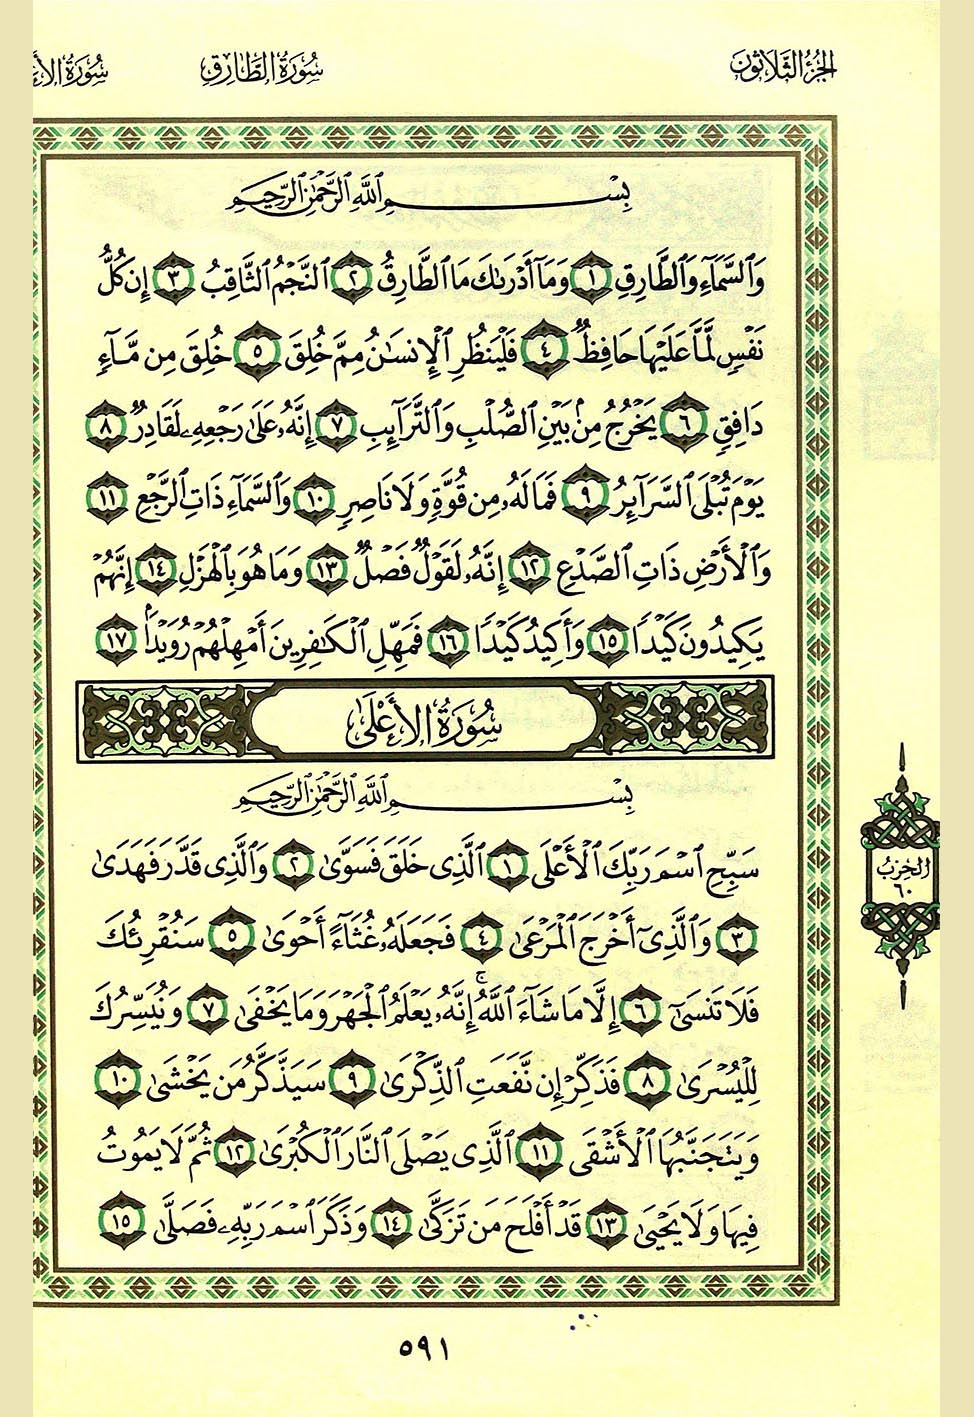 الجزء الثلاثون
سورة الطارق
سورة الأع
بِسْمِ ٱللَّهِ ٱلرَّحْمَٰنِ ٱلرَّحِيمِ
وَٱلسَّمَآءِ وَٱلطَّارِقِ ١ وَمَآ أَدْرَىٰكَ مَا ٱلطَّارِقُ ٢ ٱلنَّجْمُ ٱلثَّاقِبُ ٣ إِن كُلُّ
نَفْسٍ لَّمَّا عَلَيْهَا حَافِظٌ ٤ فَلْيَنظُرِ ٱلْإِنسَٰنُ مِمَّ خُلِقَ ٥ خُلِقَ مِن مَّآءٍ
دَافِقٍ ٦ يَخْرُجُ مِنۢ بَيْنِ ٱلصُّلْبِ وَٱلتَّرَآئِبِ ٧ إِنَّهُۥ عَلَىٰ رَجْعِهِۦ لَقَادِرٌ ٨
يَوْمَ تُبْلَى ٱلسَّرَآئِرُ ٩ فَمَا لَهُۥ مِن قُوَّةٍ وَلَا نَاصِرٍ ١٠ وَٱلسَّمَآءِ ذَاتِ ٱلرَّجْعِ ١١
وَٱلْأَرْضِ ذَاتِ ٱلصَّدْعِ ١٢ إِنَّهُۥ لَقَوْلٌ فَصْلٌ ١٣ وَمَا هُوَ بِٱلْهَزْلِ ١٤ إِنَّهُمْ
يَكِيدُونَ كَيْدًا ١٥ وَأَكِيدُ كَيْدًا ١٦ فَمَهِّلِ ٱلْكَٰفِرِينَ أَمْهِلْهُمْ رُوَيْدًۢا ١٧
سُورَةُ الأَعْلَى
بِسْمِ ٱللَّهِ ٱلرَّحْمَٰنِ ٱلرَّحِيمِ
سَبِّحِ ٱسْمَ رَبِّكَ ٱلْأَعْلَى ١ ٱلَّذِى خَلَقَ فَسَوَّىٰ ٢ وَٱلَّذِى قَدَّرَ فَهَدَىٰ
٣ وَٱلَّذِىٓ أَخْرَجَ ٱلْمَرْعَىٰ ٤ فَجَعَلَهُۥ غُثَآءً أَحْوَىٰ ٥ سَنُقْرِئُكَ
فَلَا تَنسَىٰٓ ٦ إِلَّا مَا شَآءَ ٱللَّهُ ۚ إِنَّهُۥ يَعْلَمُ ٱلْجَهْرَ وَمَا يَخْفَىٰ ٧ وَنُيَسِّرُكَ
لِلْيُسْرَىٰ ٨ فَذَكِّرْ إِن نَّفَعَتِ ٱلذِّكْرَىٰ ٩ سَيَذَّكَّرُ مَن يَخْشَىٰ ١٠
وَيَتَجَنَّبُهَا ٱلْأَشْقَى ١١ ٱلَّذِى يَصْلَى ٱلنَّارَ ٱلْكُبْرَىٰ ١٢ ثُمَّ لَا يَمُوتُ
فِيهَا وَلَا يَحْيَىٰ ١٣ قَدْ أَفْلَحَ مَن تَزَكَّىٰ ١٤ وَذَكَرَ ٱسْمَ رَبِّهِۦ فَصَلَّىٰ ١٥
الحزب
٦٠
٥٩١